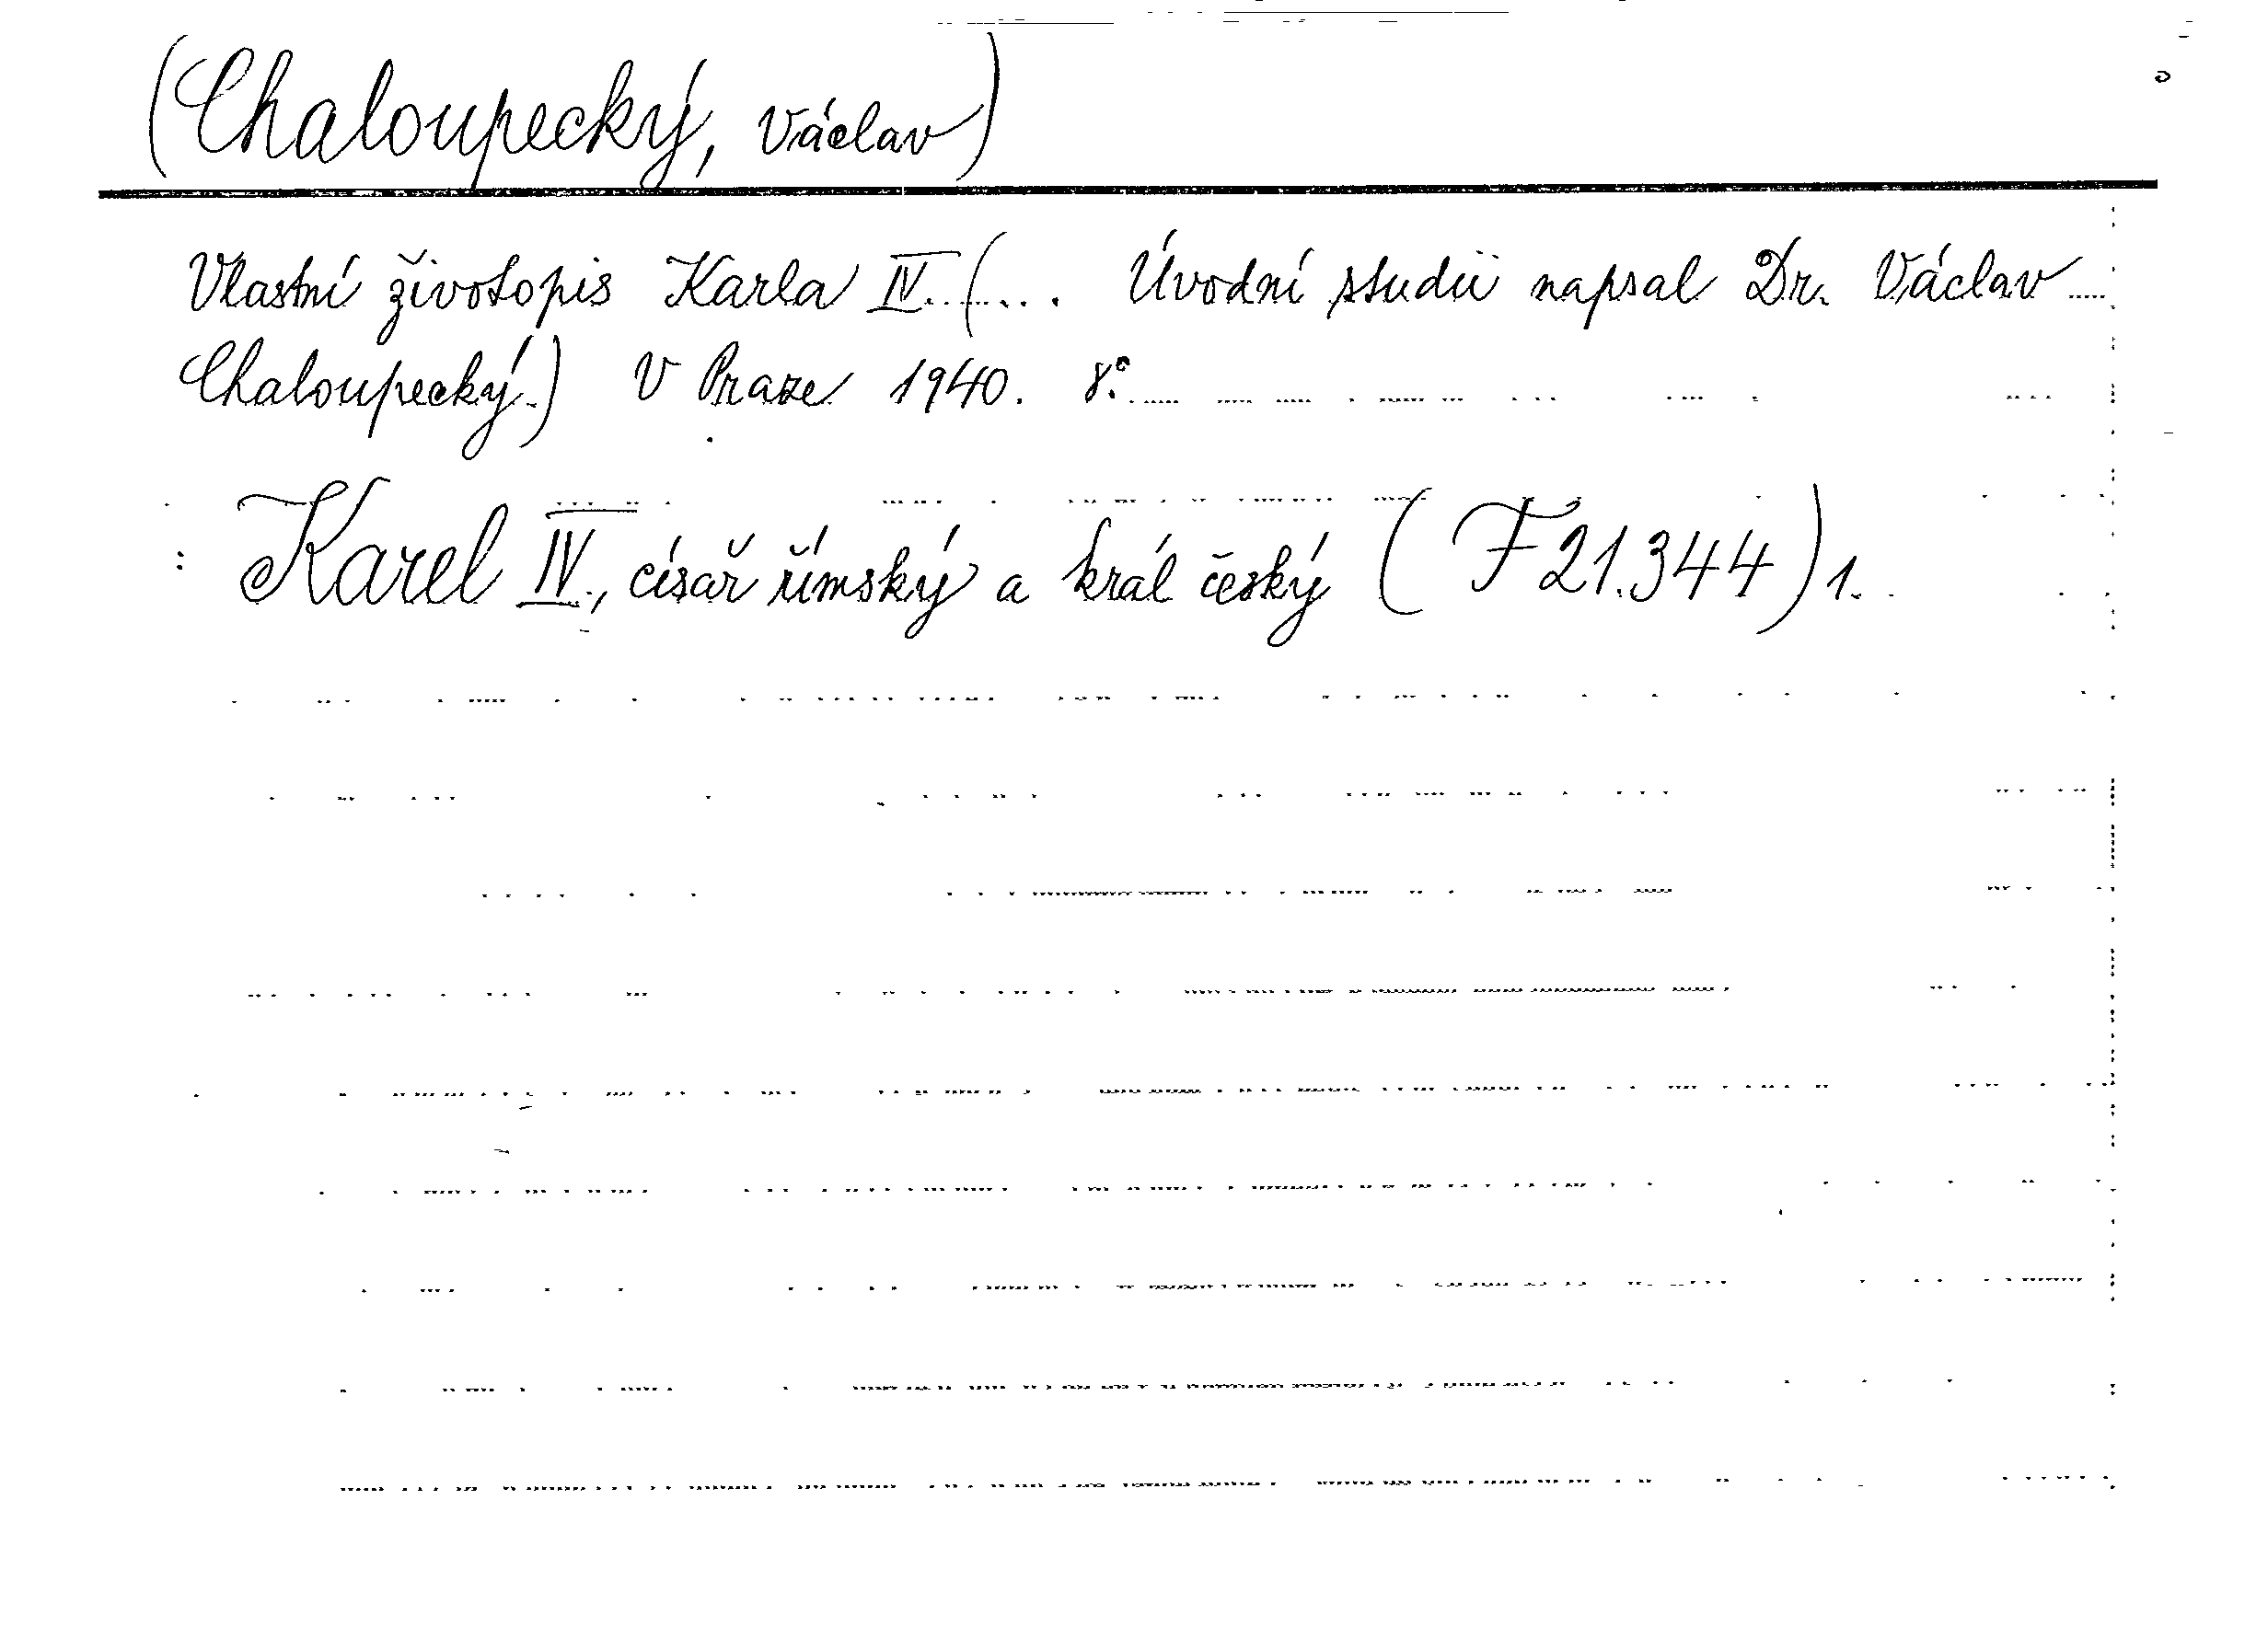 (Chaloupecký, Václav)
Vlastní životopis Karla IV. (... Úvodní studii napsal Dr. Václav
Chaloupecký.) V Praze 1940. 8°.
: Karel IV., císař římský a král český (F 21.344) 1.